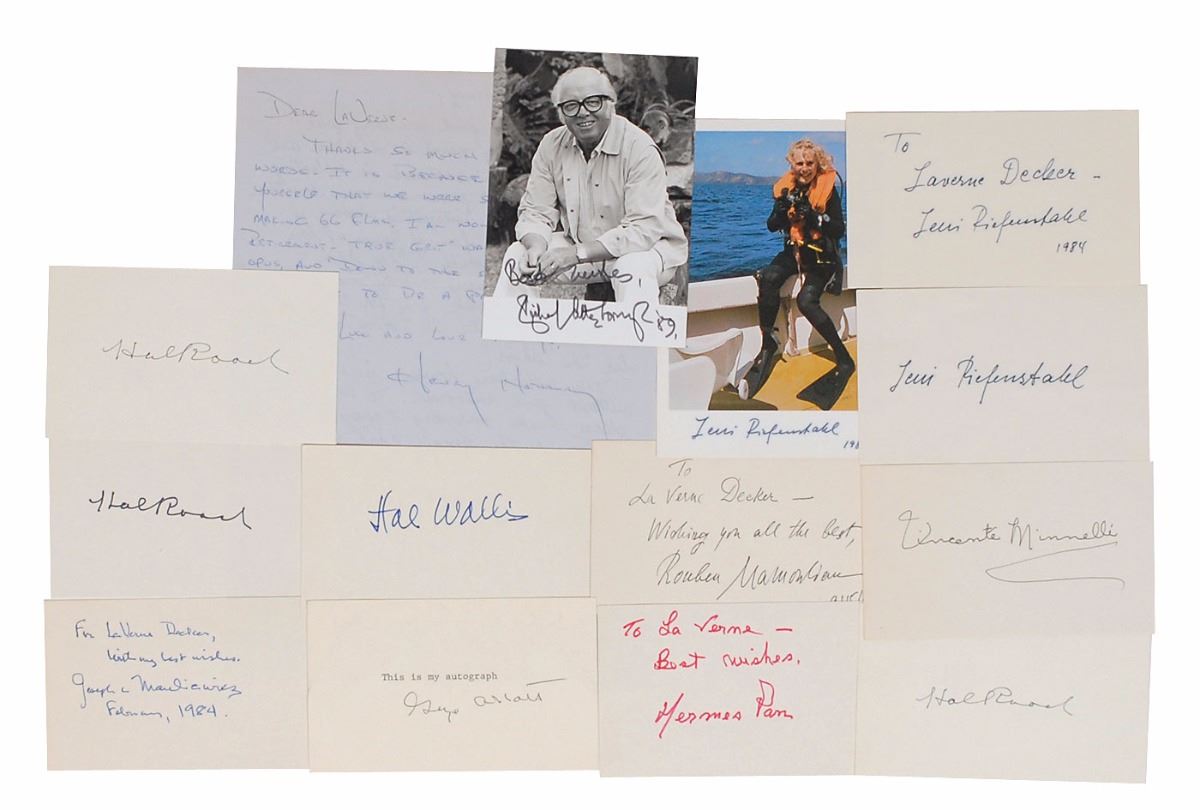 Dear LaVerne -
Thanks so much
words. It is because
yourself that we were s
making 66 films. I am now
Retirement - "True Grit" wa
opus, and down to the s
to be a
Luck and love
Best wishes,
89,
To
Laverne Decker -
Leni Riefenstahl
1984
Leni Riefenstahl
198
Leni Riefenstahl
Hal Roach
Hal Roach
Hal Wallis
To
La Verne Decker —
Wishing you all the best,
Rouben Mamoulian
Vincente Minnelli
For LaVerne Decker,
with my best wishes.
Joseph L Mankiewicz
February, 1984.
This is my autograph
To La Verne —
Best wishes,
Hermes Pan
Hal Roach